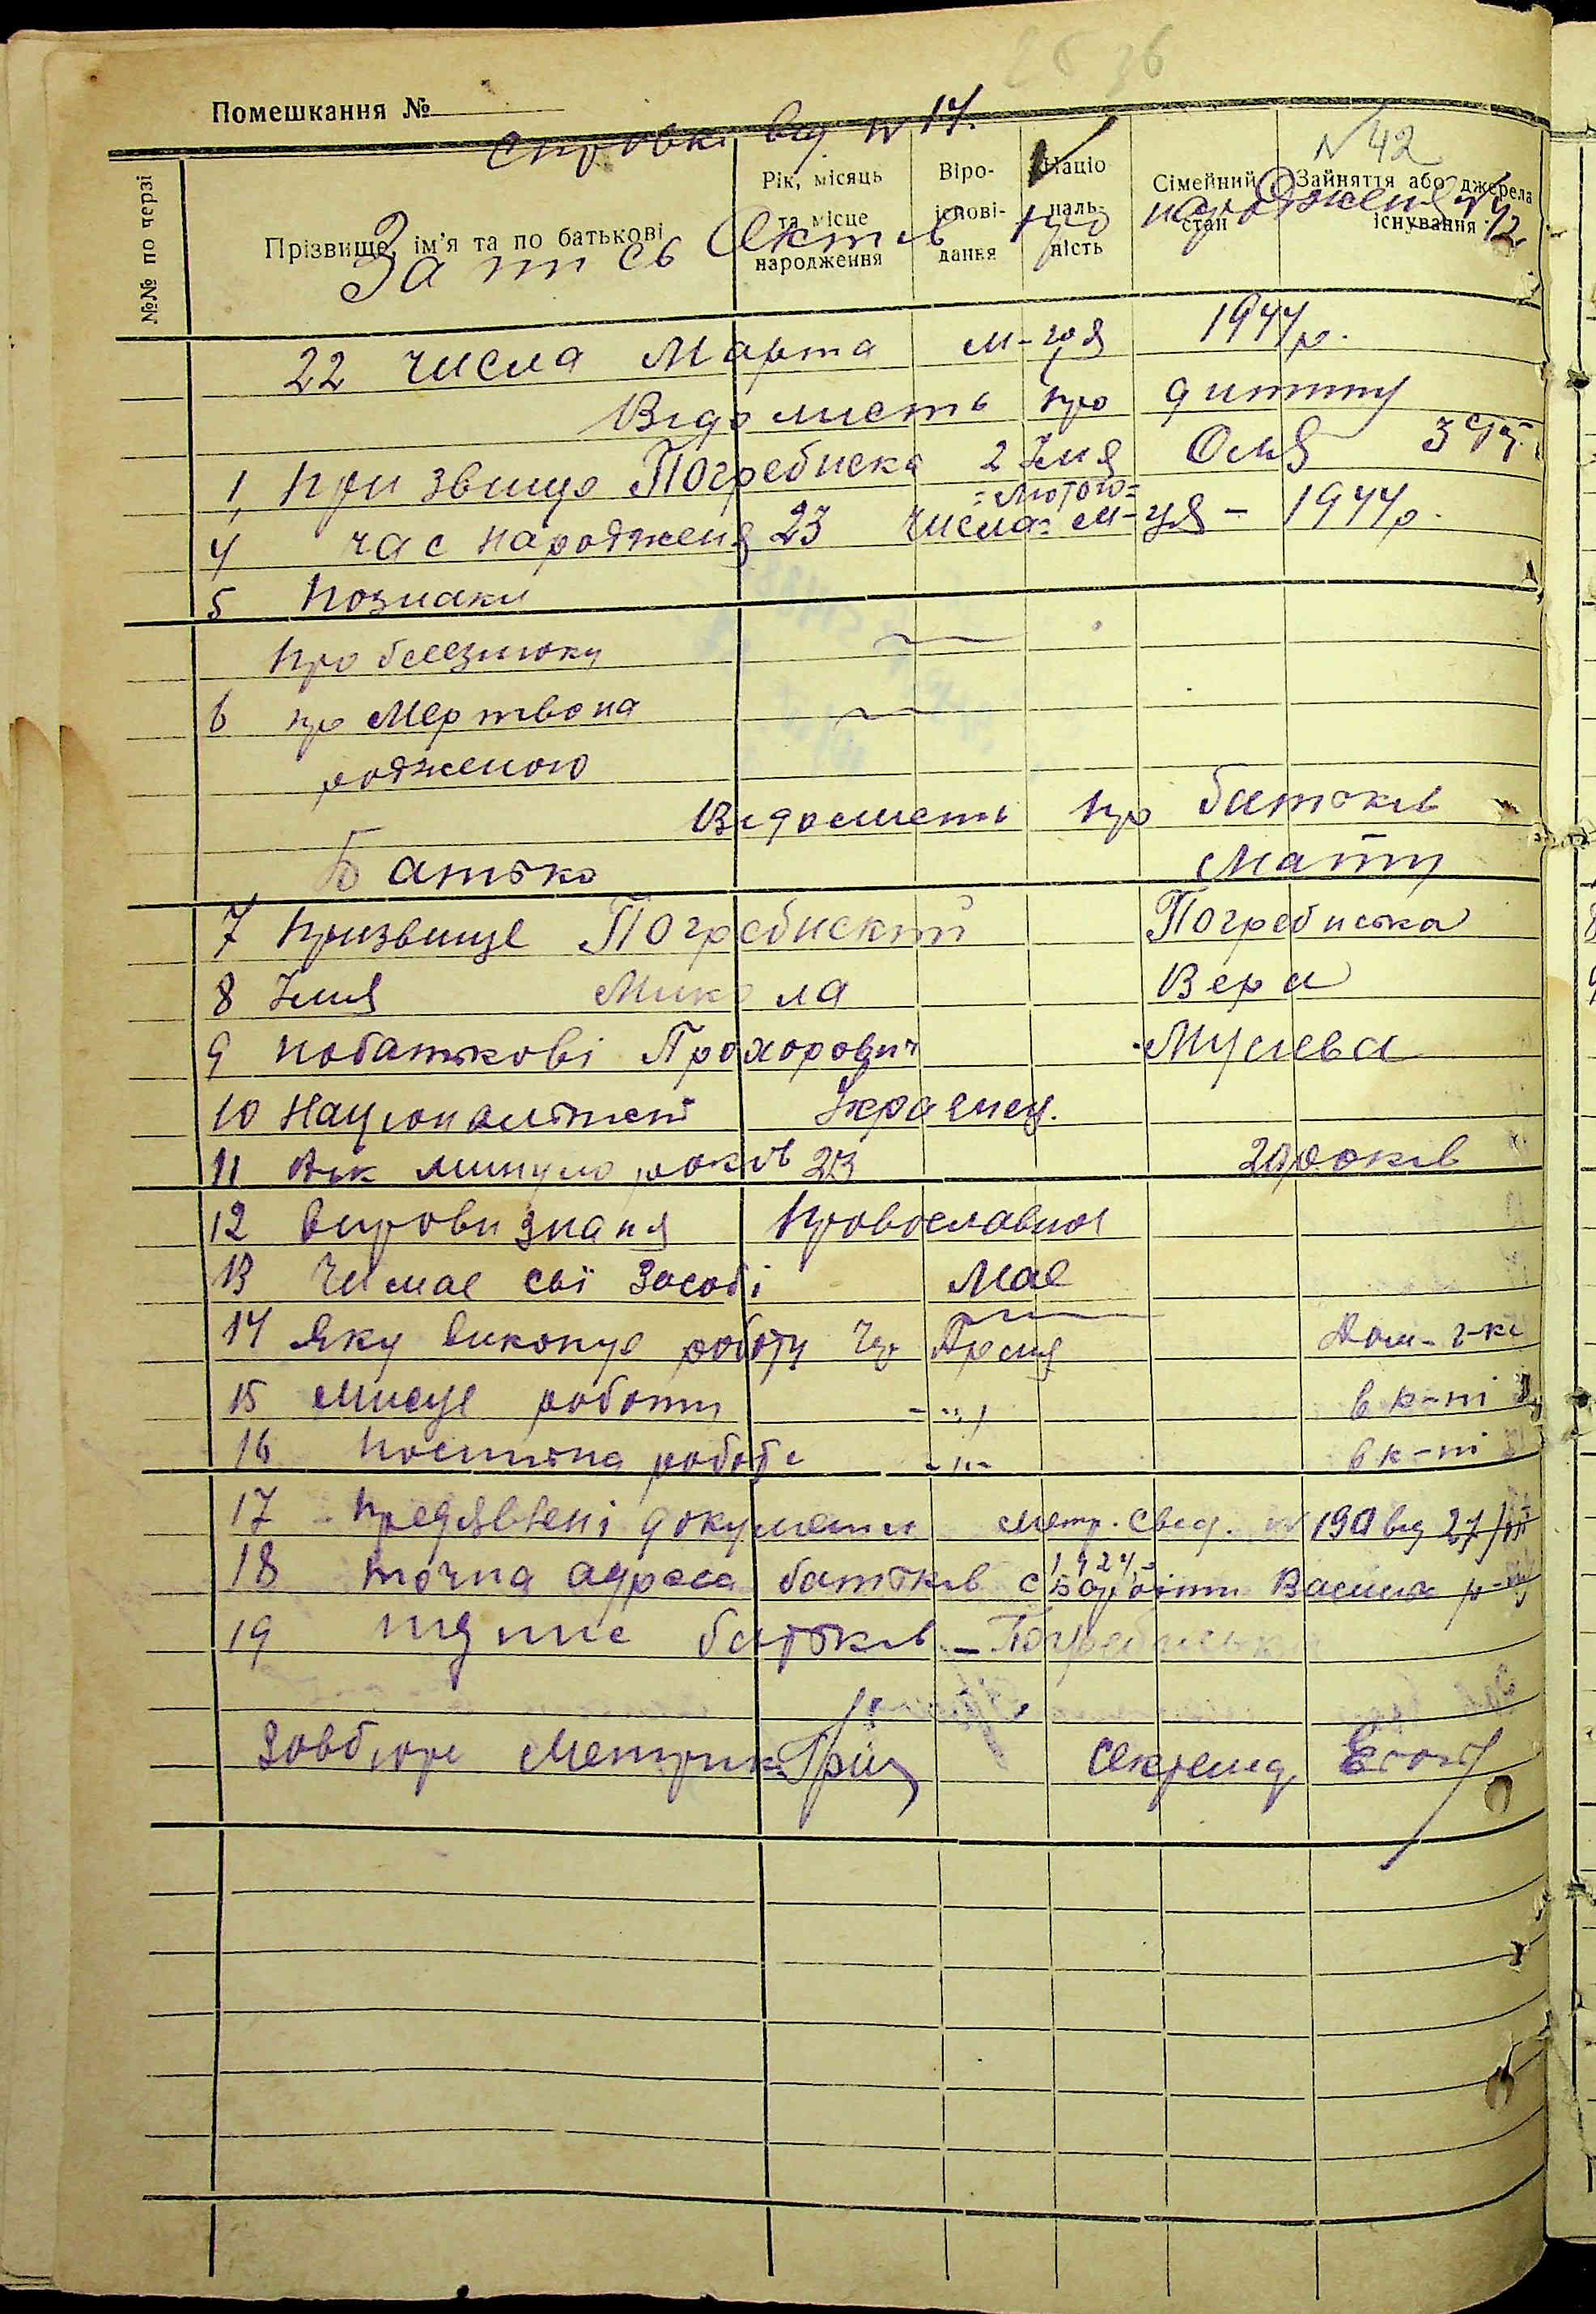 26 36
Помешкання №
Справка від N 17.
№№ по черзі
Прізвище, ім'я та по батькові
Рік, місяць та місце народження
Віро-ісповідання
Націо наль-ність
Сімейний стан
Зайняття або джерела існування
N 42
Запись Октів про народженя N 12
22 числа Марта м-ця 1944 р.
Відомисть про дитину
1, призвище Погребиска 2 Імя Оля 3 ст.
= лютого =
4 час народженя 23 числа = м-ця - 1944 р.
5 познаки
про близнюку
6 про Мертвона
родженою
Відомисть про батьків
Батько Мати
7 призвище Погребиский Погребиська
8 Імя Микола Вера
9 побатькові Прохорович Мусиева
10 Националтност Украинец.
11 Як минуло років 23 20 років
12 Вировизнаня провославної
13 Чи має свї Засобі Має
14 яку виконує роботу Чр Армія Дом-г-ка
15 мисце роботи -"- в к-пі
16 постійна робота -"- в к-пі
17 предявлені документи метр. свед. N 190 від 27/III
1924
18 точна адреса батьків с Васильк р-ну
19 підпис батьків - Погребиська
Завбюро Метрик. Гріц Секретар